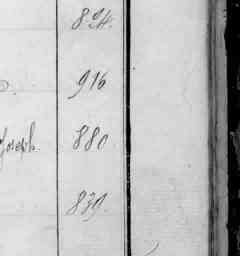 824.
916
Joseph 880
839.